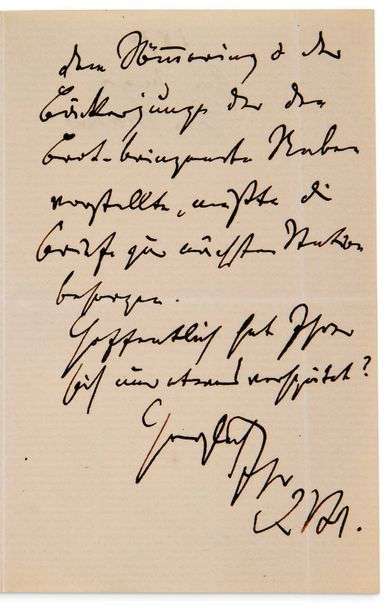 dem Sömmering & der
Bäckerjunge der den
Brot-bringenden Raben
vorstellte, mußte die
Briefe zur nächsten Station
besorgen.
Hoffentlich hat Ihrer
sich nur etwas verspätet?
Herzlich
Ihr
J. Br.